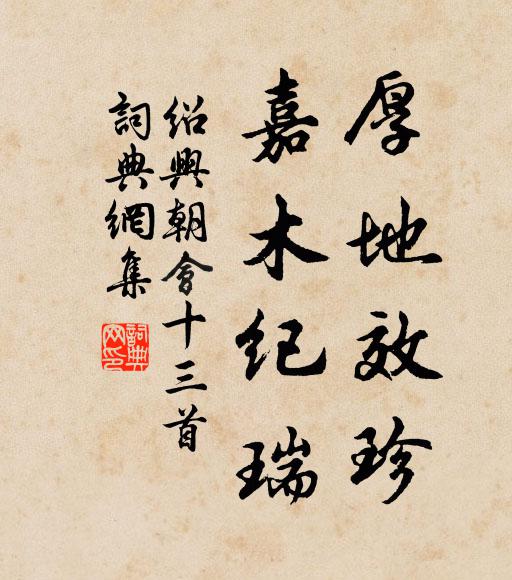 厚地效珍
嘉木纪瑞
绍興朝會十三首
詞典網集
詞典网印